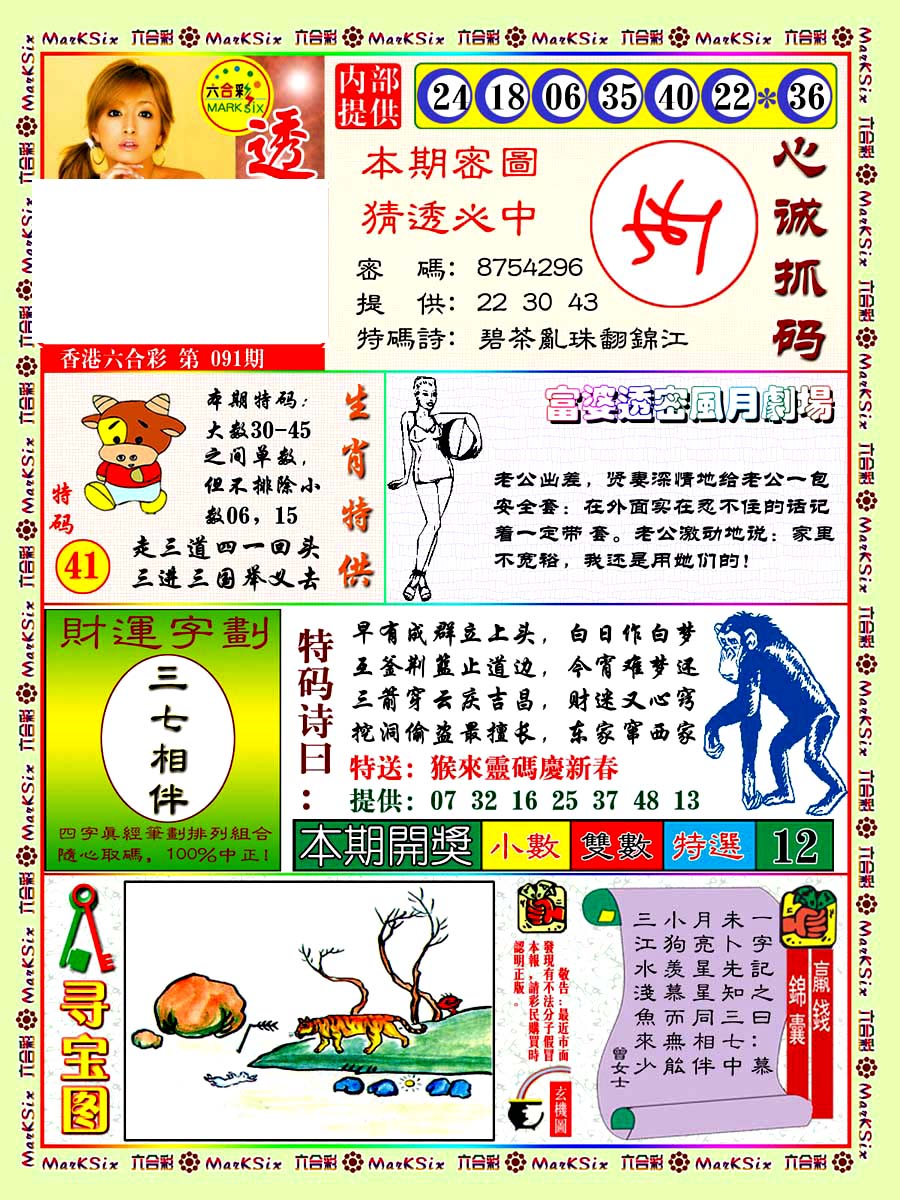 MarKSix 六合彩 MarKSix 六合彩 MarKSix 六合彩 MarKSix 六合彩 MarKSix 六合彩
六合彩
MARK six
透
内部
提供
24 18 06 35 40 22 * 36
本期密圖
猜透必中
密 碼: 8754296
提 供: 22 30 43
特碼詩: 碧茶亂珠翻錦江
心诚抓码
香港六合彩 第 091期
本期特码:
大数30-45
之间单数,
但不排除小
数06, 15
走三道四一回头
三进三国举义去
特码
41
生肖特供
富婆透密風月劇場
老公出差, 贤妻深情地给老公一包
安全套: 在外面实在忍不住的话记
着一定带 套。老公激动地说: 家里
不宽裕, 我还是用她们的!
財運字劃
三七相伴
四字真經筆劃排列組合
隨心取碼, 100%中正!
特码诗曰:
早有成群立上头, 白日作白梦
五釜荆蓝止道边, 今宵难梦还
三箭穿云庆吉昌, 财迷又心窍
挖洞偷盗最擅长, 东家窜西家
特送: 猴來靈碼慶新春
提供: 07 32 16 25 37 48 13
本期開獎 小數 雙數 特選 12
寻宝图
敬告:最近市面
發現有不法分子假冒
本報,請彩民購買時
認明正版。
玄機圖
一字記之曰:慕
未卜先知三七中
月亮星星同相伴
小狗羨慕而無能
三江水淺魚來少
曾女士
贏錢
錦囊
MarKSix 六合彩 MarKSix 六合彩 MarKSix 六合彩 MarKSix 六合彩 MarKSix 六合彩